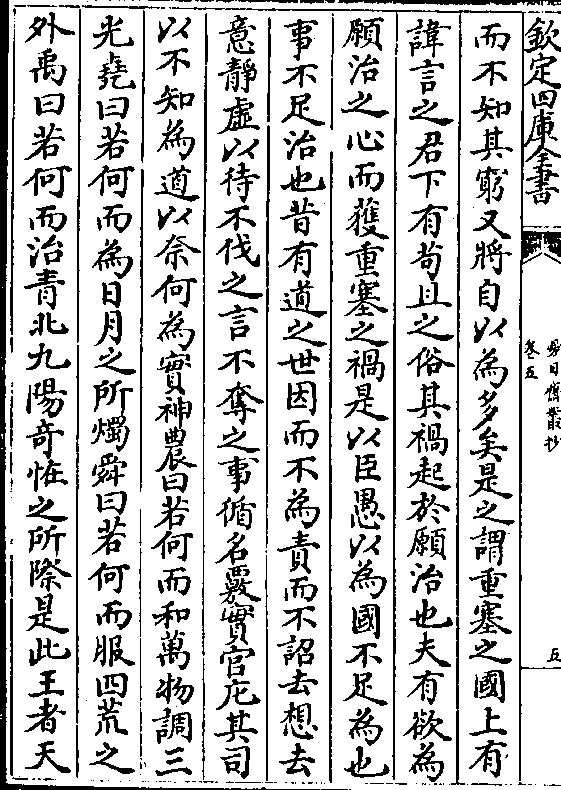 欽定四庫全書
卷五
五
而不知其窮又將自以為多矣是之謂重塞之國上有
諱言之君下有苟且之俗其禍起於願治也夫有欲為
願治之心而獲重塞之禍是以臣愚以為國不足為也
事不足治也昔有道之世因而不為責而不詔去想去
意靜虛以待不伐之言不奪之事循名覈實官庀其司
以不知為道以奈何為實神農曰若何而和萬物調三
光堯曰若何而為日月之所燭舜曰若何而服四荒之
外禹曰若何而治青北九陽奇恠之所際是此王者天